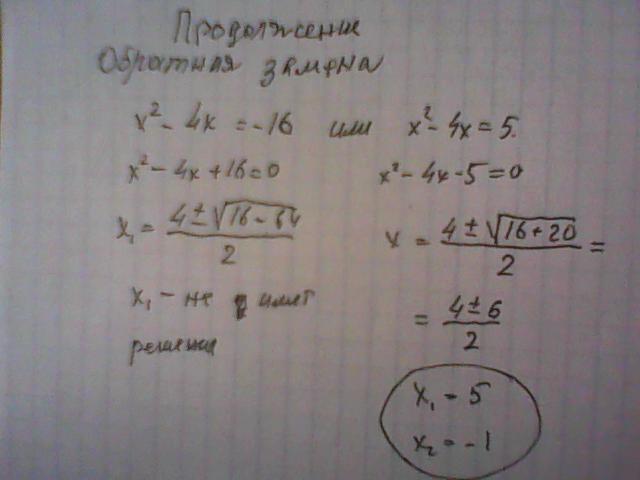 Продолжение
Обратная замена
x² - 4x = -16 или x² - 4x = 5.
x² - 4x + 16 = 0
x² - 4x - 5 = 0
x₁ = (4 ± √(16 - 64))/2
x = (4 ± √(16 + 20))/2 =
x₁ - не имеет
решение
= (4 ± 6)/2
x₁ = 5
x₂ = -1